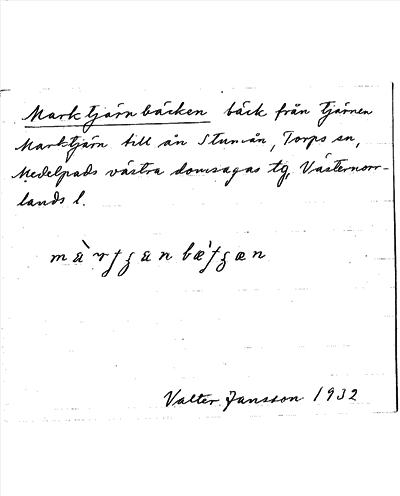 Marktjärnbäcken bäck från tjärnen
Marktjärn till ån Stuman, Torps sn,
Medelpads västra domsagas tg, Västernorr-
lands l.
Valter Jansson 1932